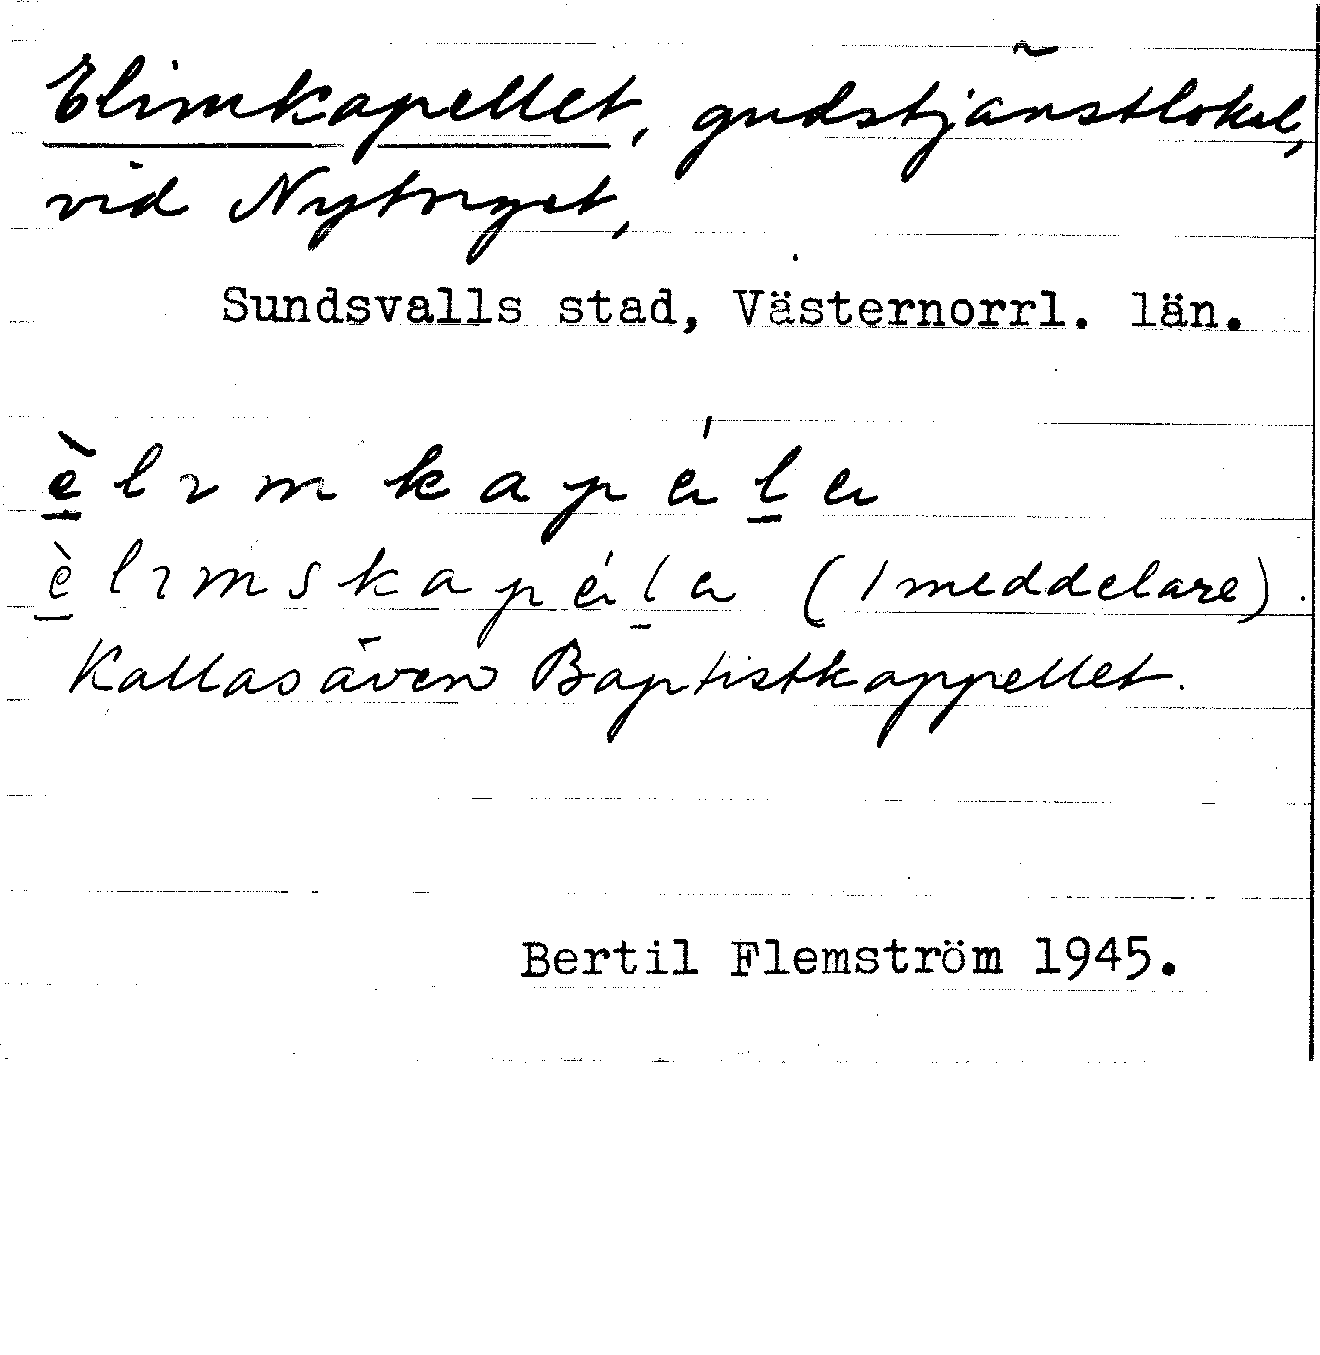 Elimkapellet, gudstjänstlokal,
vid Nytorget,
Sundsvalls stad, Västernorrl. län.
è̱ l ı m k a p é ḻ a
è̱ l ı m s k a p é ḻ a (1 meddelare).
Kallas även Baptistkappellet.
Bertil Flemström 1945.